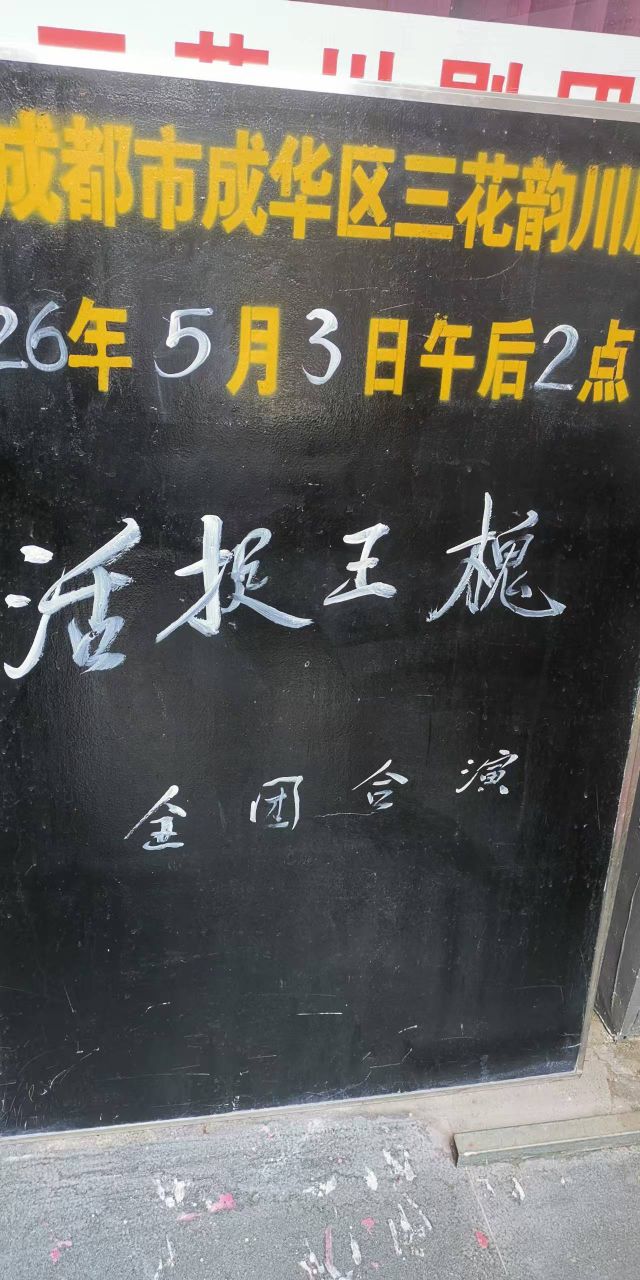 成都市成华区三花韵川
26年5月3日午后2点
活捉王槐
全团合演